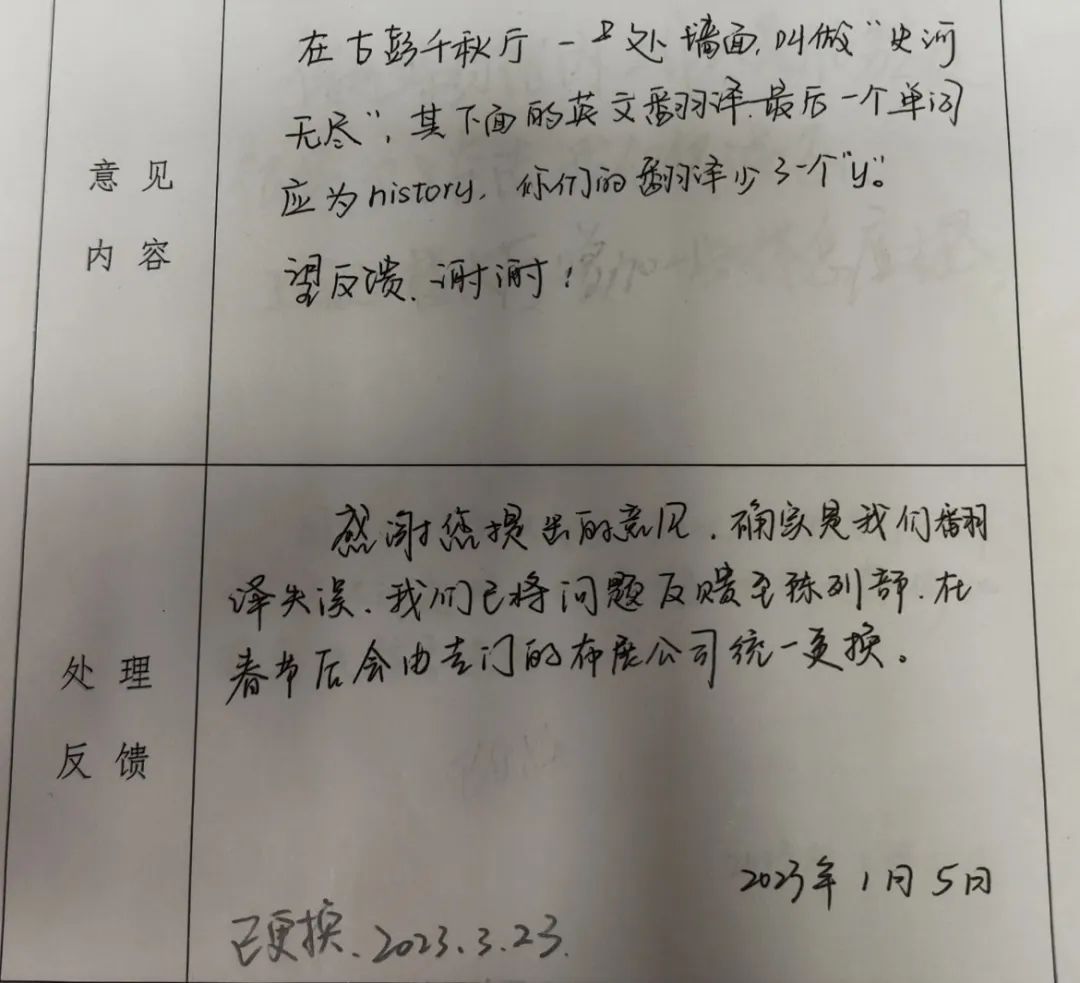 在古彭千秋厅一处墙面,叫做“史河
无尽”,其下面的英文翻译最后一个单词
意见
应为history,你们的翻译少了一个“y”。
内容
望反馈、谢谢!
感谢您提出的意见,确实是我们翻
译失误、我们已将问题反馈至陈列部,在
春节后会由专门的布展公司统一更换。
处理
反馈
2023年1月5日
已更换、2023.3.23.